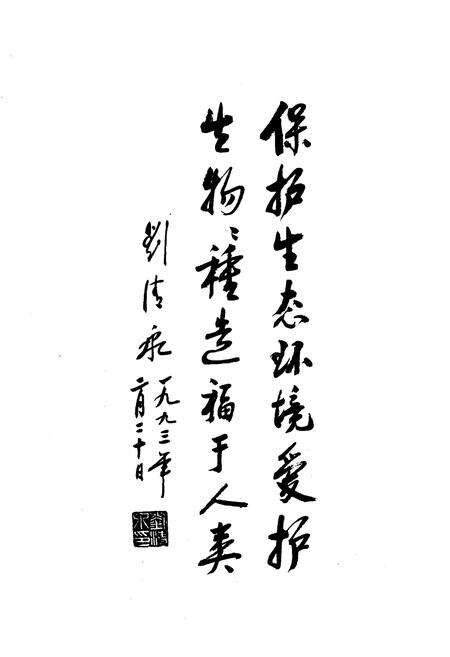 保护生态环境爱护
生物〻種造福于人类
劉清
一九九三年
二月二十日